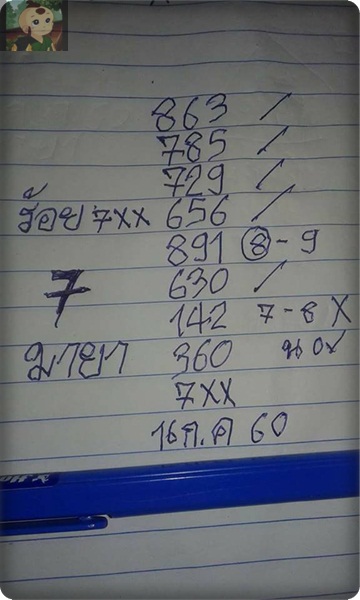 863 /
785 /
729 /
ร้อย 7XX 656 /
891 8 - 9
7 630 ✓
142 7 - 8 X
มายา 360 บน 0✓
7XX
16 ก.ค 60